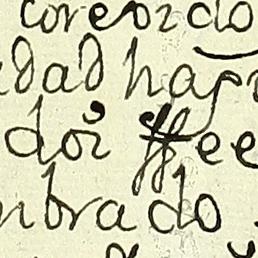 coreoido
dad hag
dor ffee
mbrado